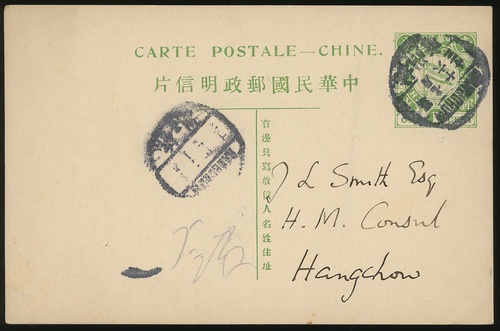 CARTE POSTALE—CHINE.
片信明政郵國民華中
右邊只寫收信人名姓住址
J L Smith Esq
H. M. Consul
Hangchow